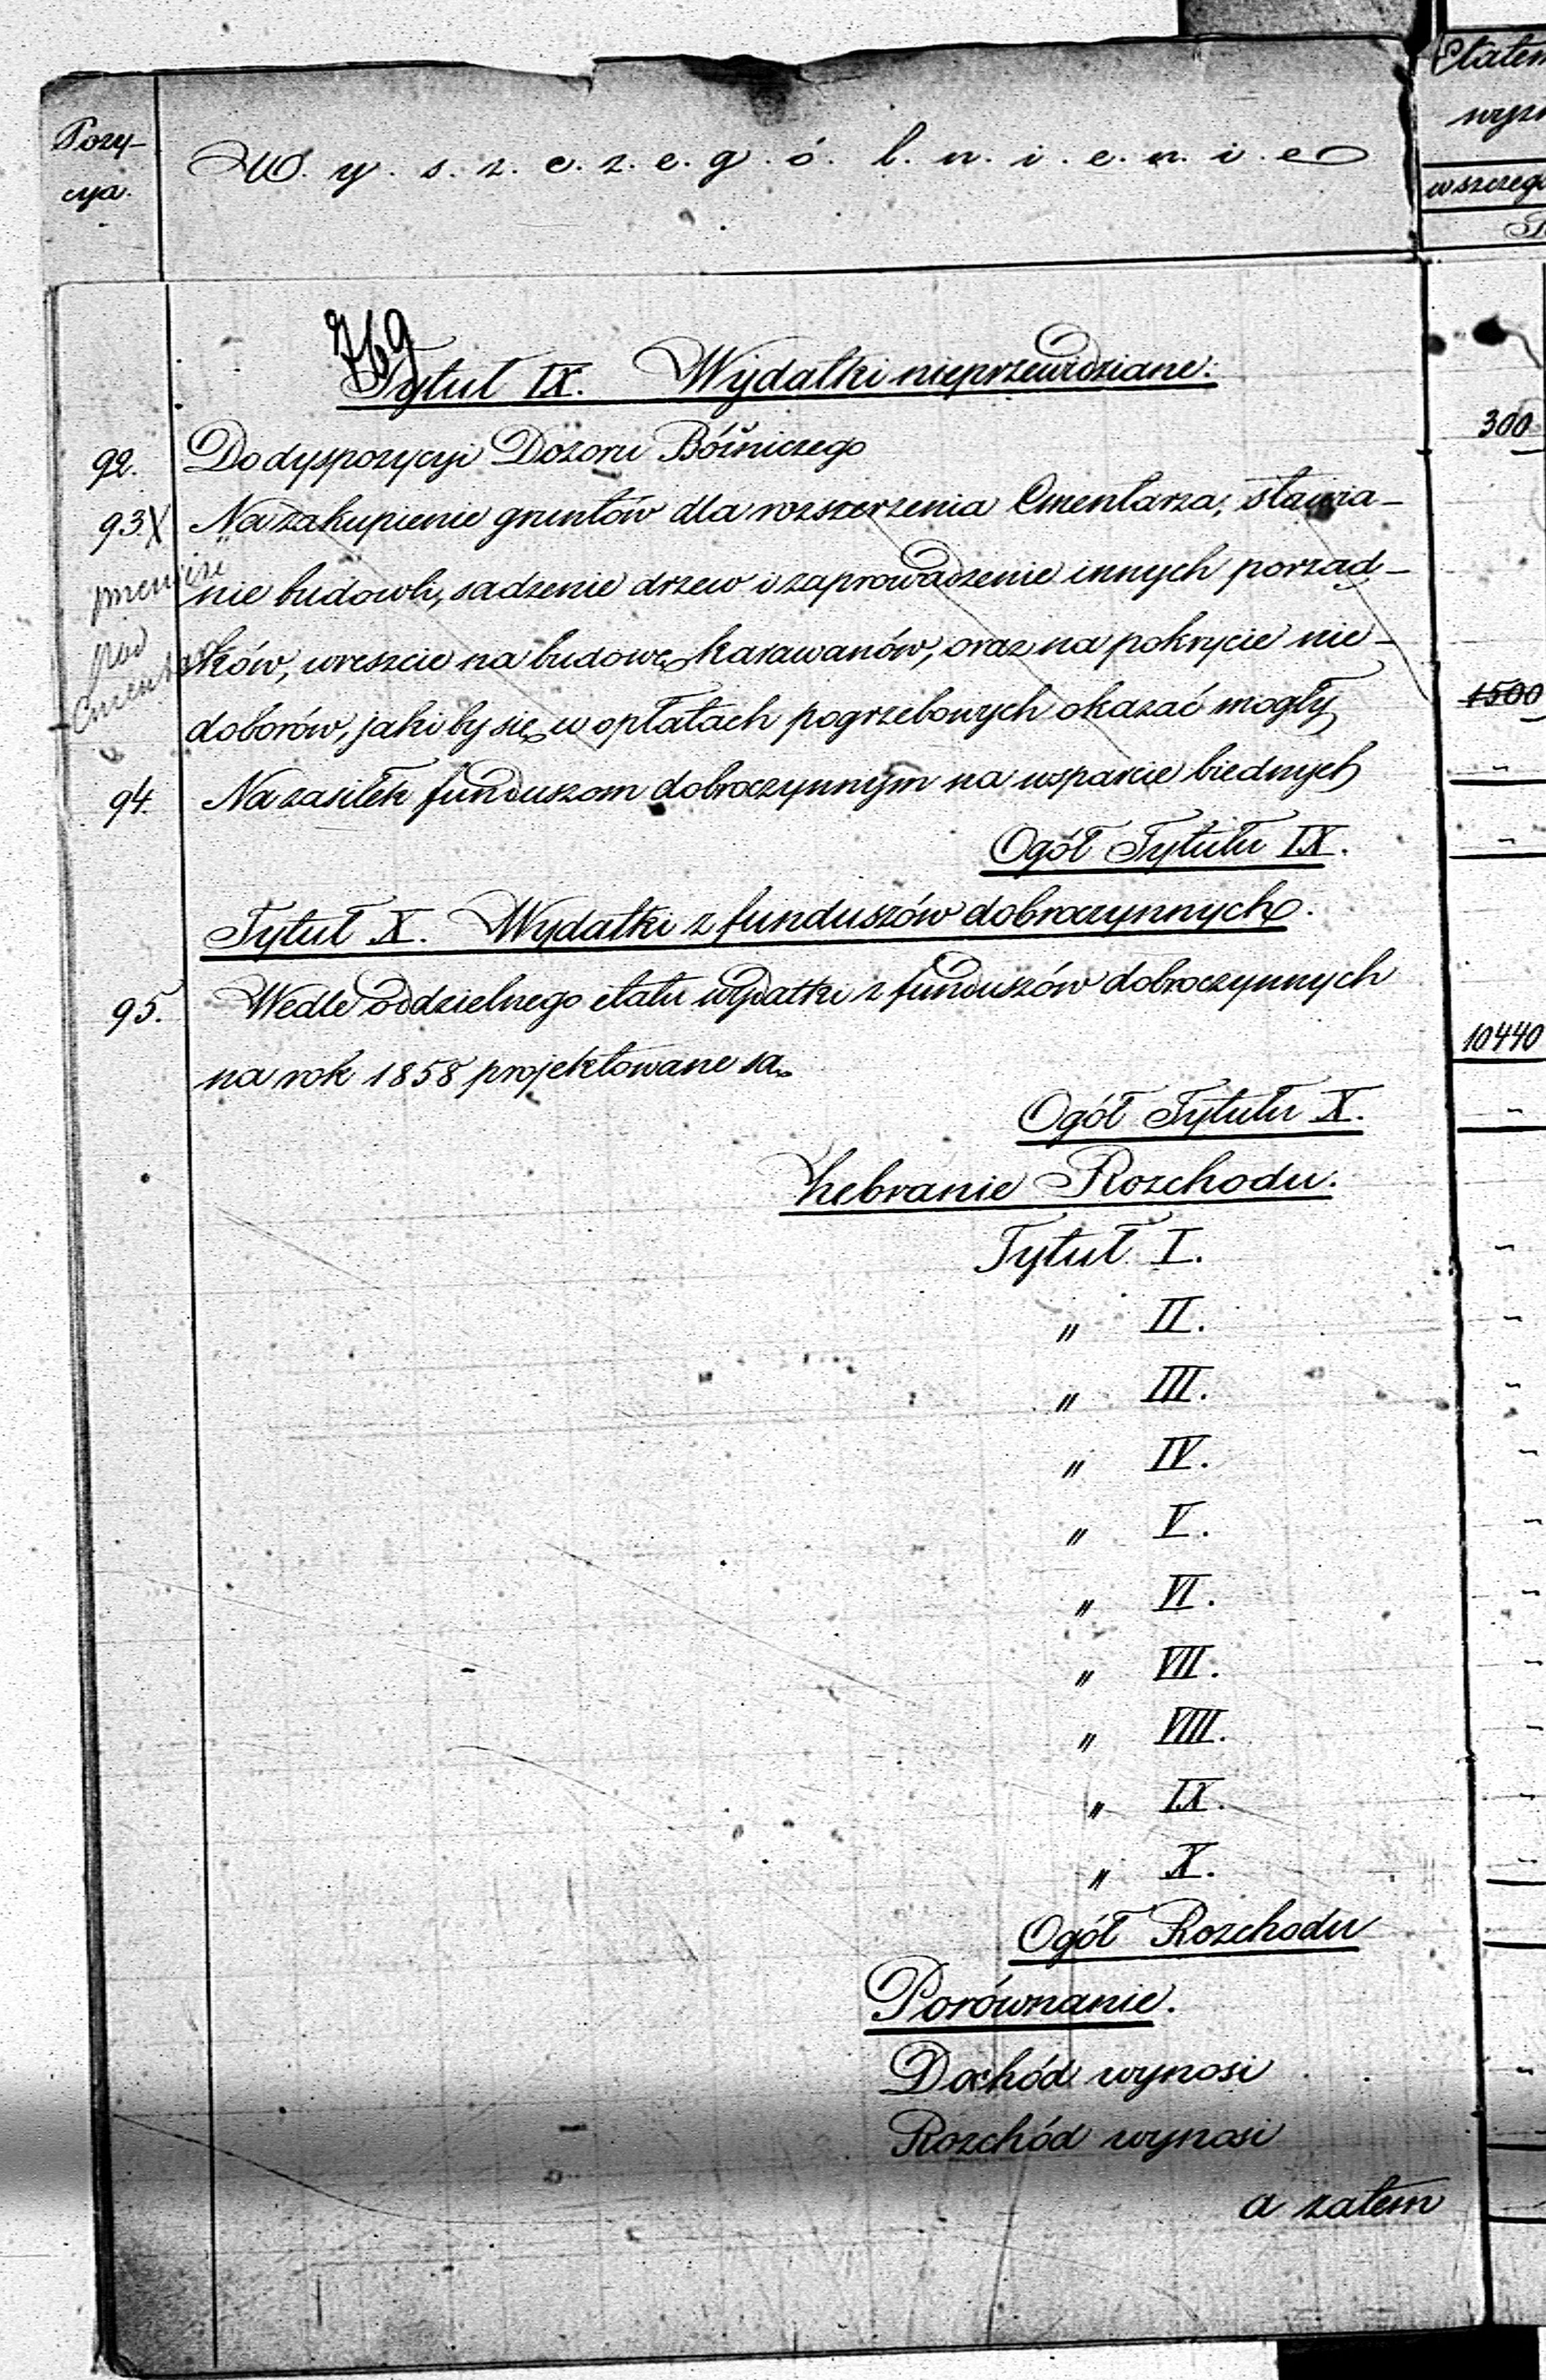 Pozy-
cya.
W. y. s. z. c. z. e. g. ó. l. n. i. e. n. i. e
w szczegó
769
Tytuł IX. Wydatki nieprzewidziane.
92. Do dyspozycyi Dozoru Bóżniczego 300
93 X Na zakupienie gruntów dla rozszerzenia Cmentarza, stawia-
nie budowli, sadzenie drzew i zaprowadzenie innych porząd-
pod
ków, wreszcie na budowę karawanów, oraz na pokrycie nie-
doborów, jaki by się w opłatach pogrzebowych okazać mogły 1500
94. Na zasiłek funduszom dobroczynnym na wsparcie biednych "
Ogół Tytułu IX. "
Tytuł X. Wydatki z funduszów dobroczynnych.
95. Wedle oddzielnego etatu wydatki z funduszów dobroczynnych
na rok 1858 projektowane są 10440
Ogół Tytułu X. "
Zebranie Rozchodu.
Tytuł I. "
" II. "
" III. "
" IV. "
" V. "
" VI. "
" VII. "
" VIII. "
" IX. "
" X. "
Ogół Rozchodu
Porównanie.
Dochód wynosi "
Rozchód wynosi
a zatem